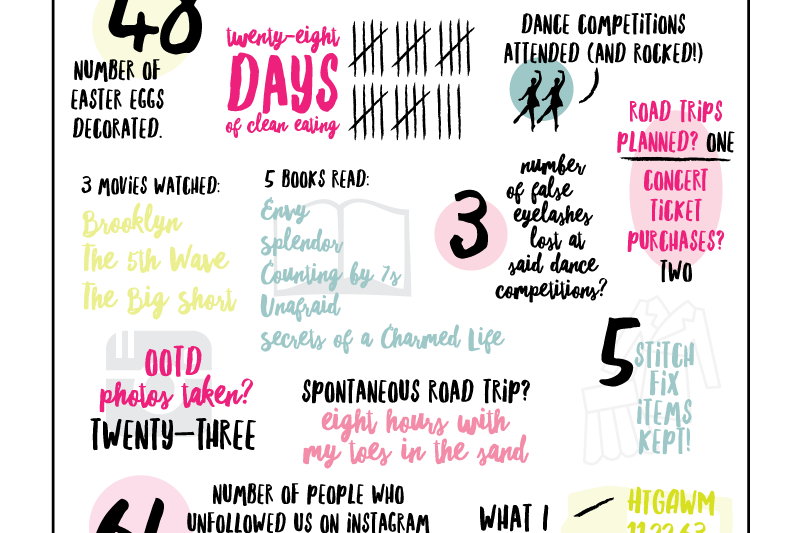 48
NUMBER OF
EASTER EGGS
DECORATED.
twenty-eight
DAYS
of clean eating
DANCE COMPETITIONS
ATTENDED (AND ROCKED!)
ROAD TRIPS
PLANNED? ONE
CONCERT
TICKET
PURCHASES?
TWO
3 MOVIES WATCHED:
Brooklyn
The 5th Wave
The Big Short
5 BOOKS READ:
Envy
Splendor
Counting by 7s
Unafraid
Secrets of a Charmed Life
3
number
of false
eyelashes
lost at
said dance
competitions?
OOTD
photos taken?
TWENTY-THREE
SPONTANEOUS ROAD TRIP?
eight hours with
my toes in the sand
5
STITCH
FIX
ITEMS
KEPT!
NUMBER OF PEOPLE WHO
UNFOLLOWED US ON INSTAGRAM
WHAT I
HTGAWM
11.22.63